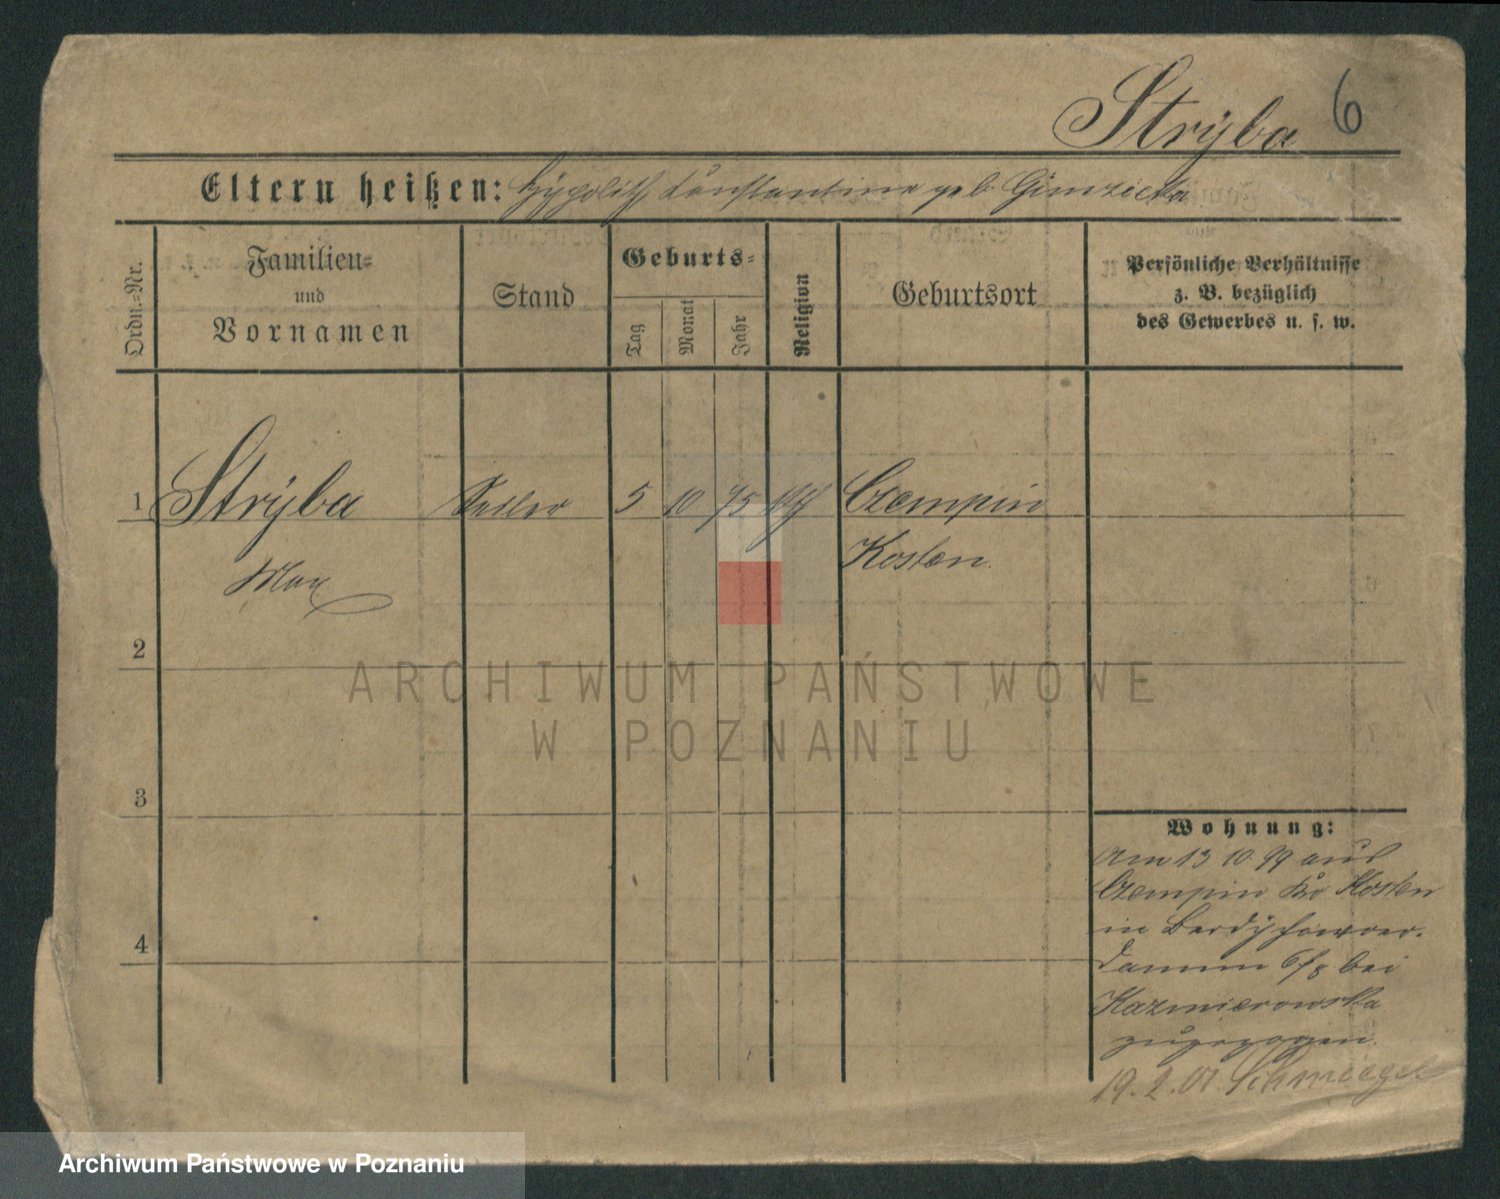 Strÿba 6
Eltern heißen: Hÿppolith, Constantine geb. Gimzicka
Ordn.=Nr.
Familien=
und
Vornamen
Stand
Geburts=
Tag
Monat
Jahr
Religion
Geburtsort
Persönliche Verhältnisse
z. B. bezüglich
des Gewerbes u. s. w.
1 Strÿba Sattler 5 10 75 kth Czempin
Kosten.
Max
2
3
4
Wohnung:
Am 13 10 99 aus
Czempin Kr Kosten
in Berdÿchower-
damm 6/8 bei
Kazmierowska
zugezogen.
19. 2. 01 Schmiegel
ARCHIWUM PAŃSTWOWE
W POZNANIU
Archiwum Państwowe w Poznaniu